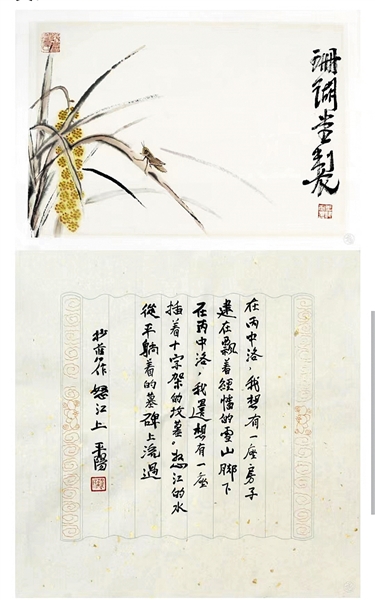 珊瑚堂製
在丙中洛，我想有一座房子
建在飄着經幡的雪山脚下
在丙中洛，我還想有一座
插着十字架的坟墓。怒江的水
從平躺着的墓碑上流過
抄舊作 怒江上